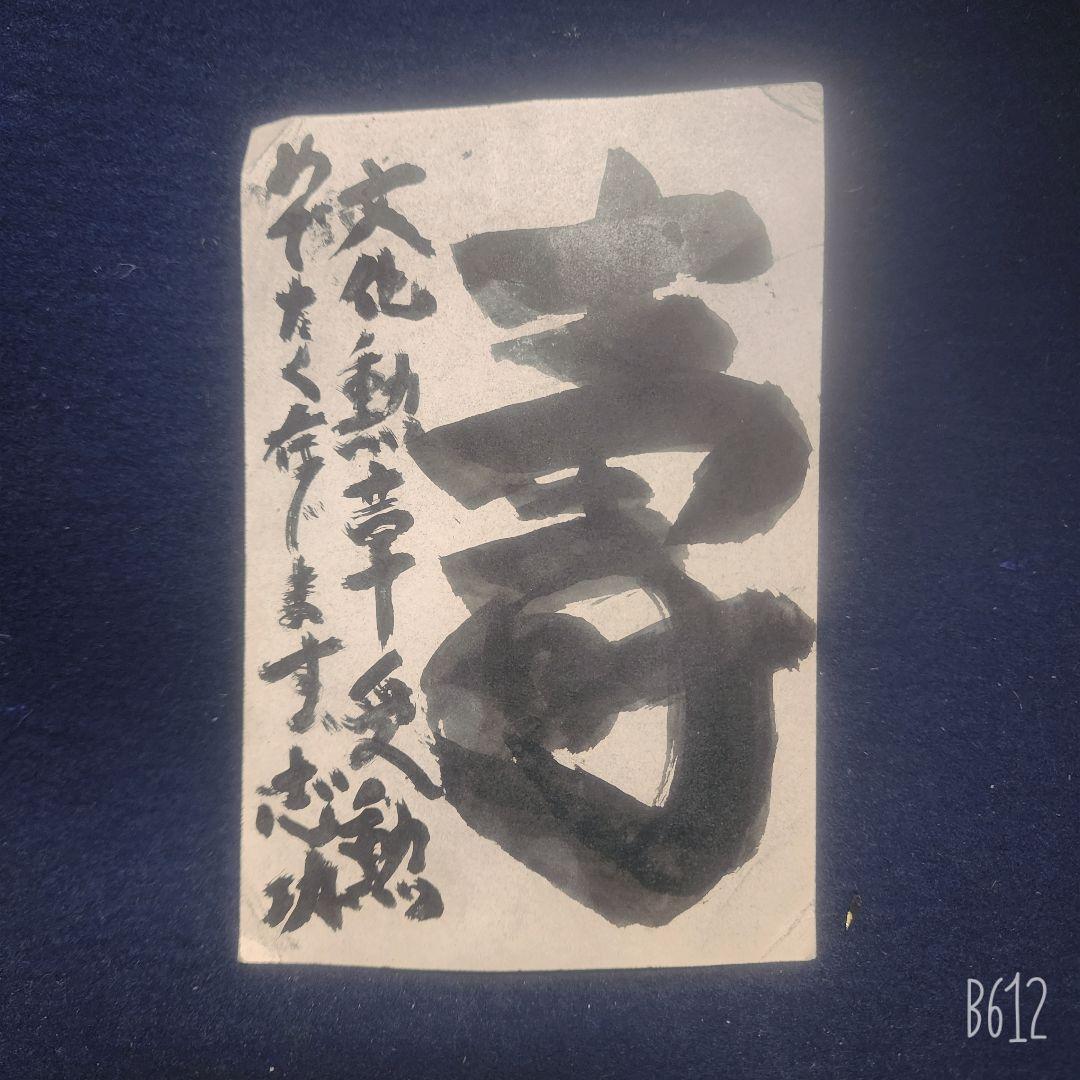 壽
文化勲章受勲
めでたく存じます 志功
B612